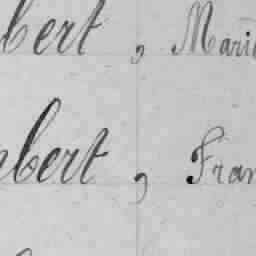 bert, Marie
bert, Fran